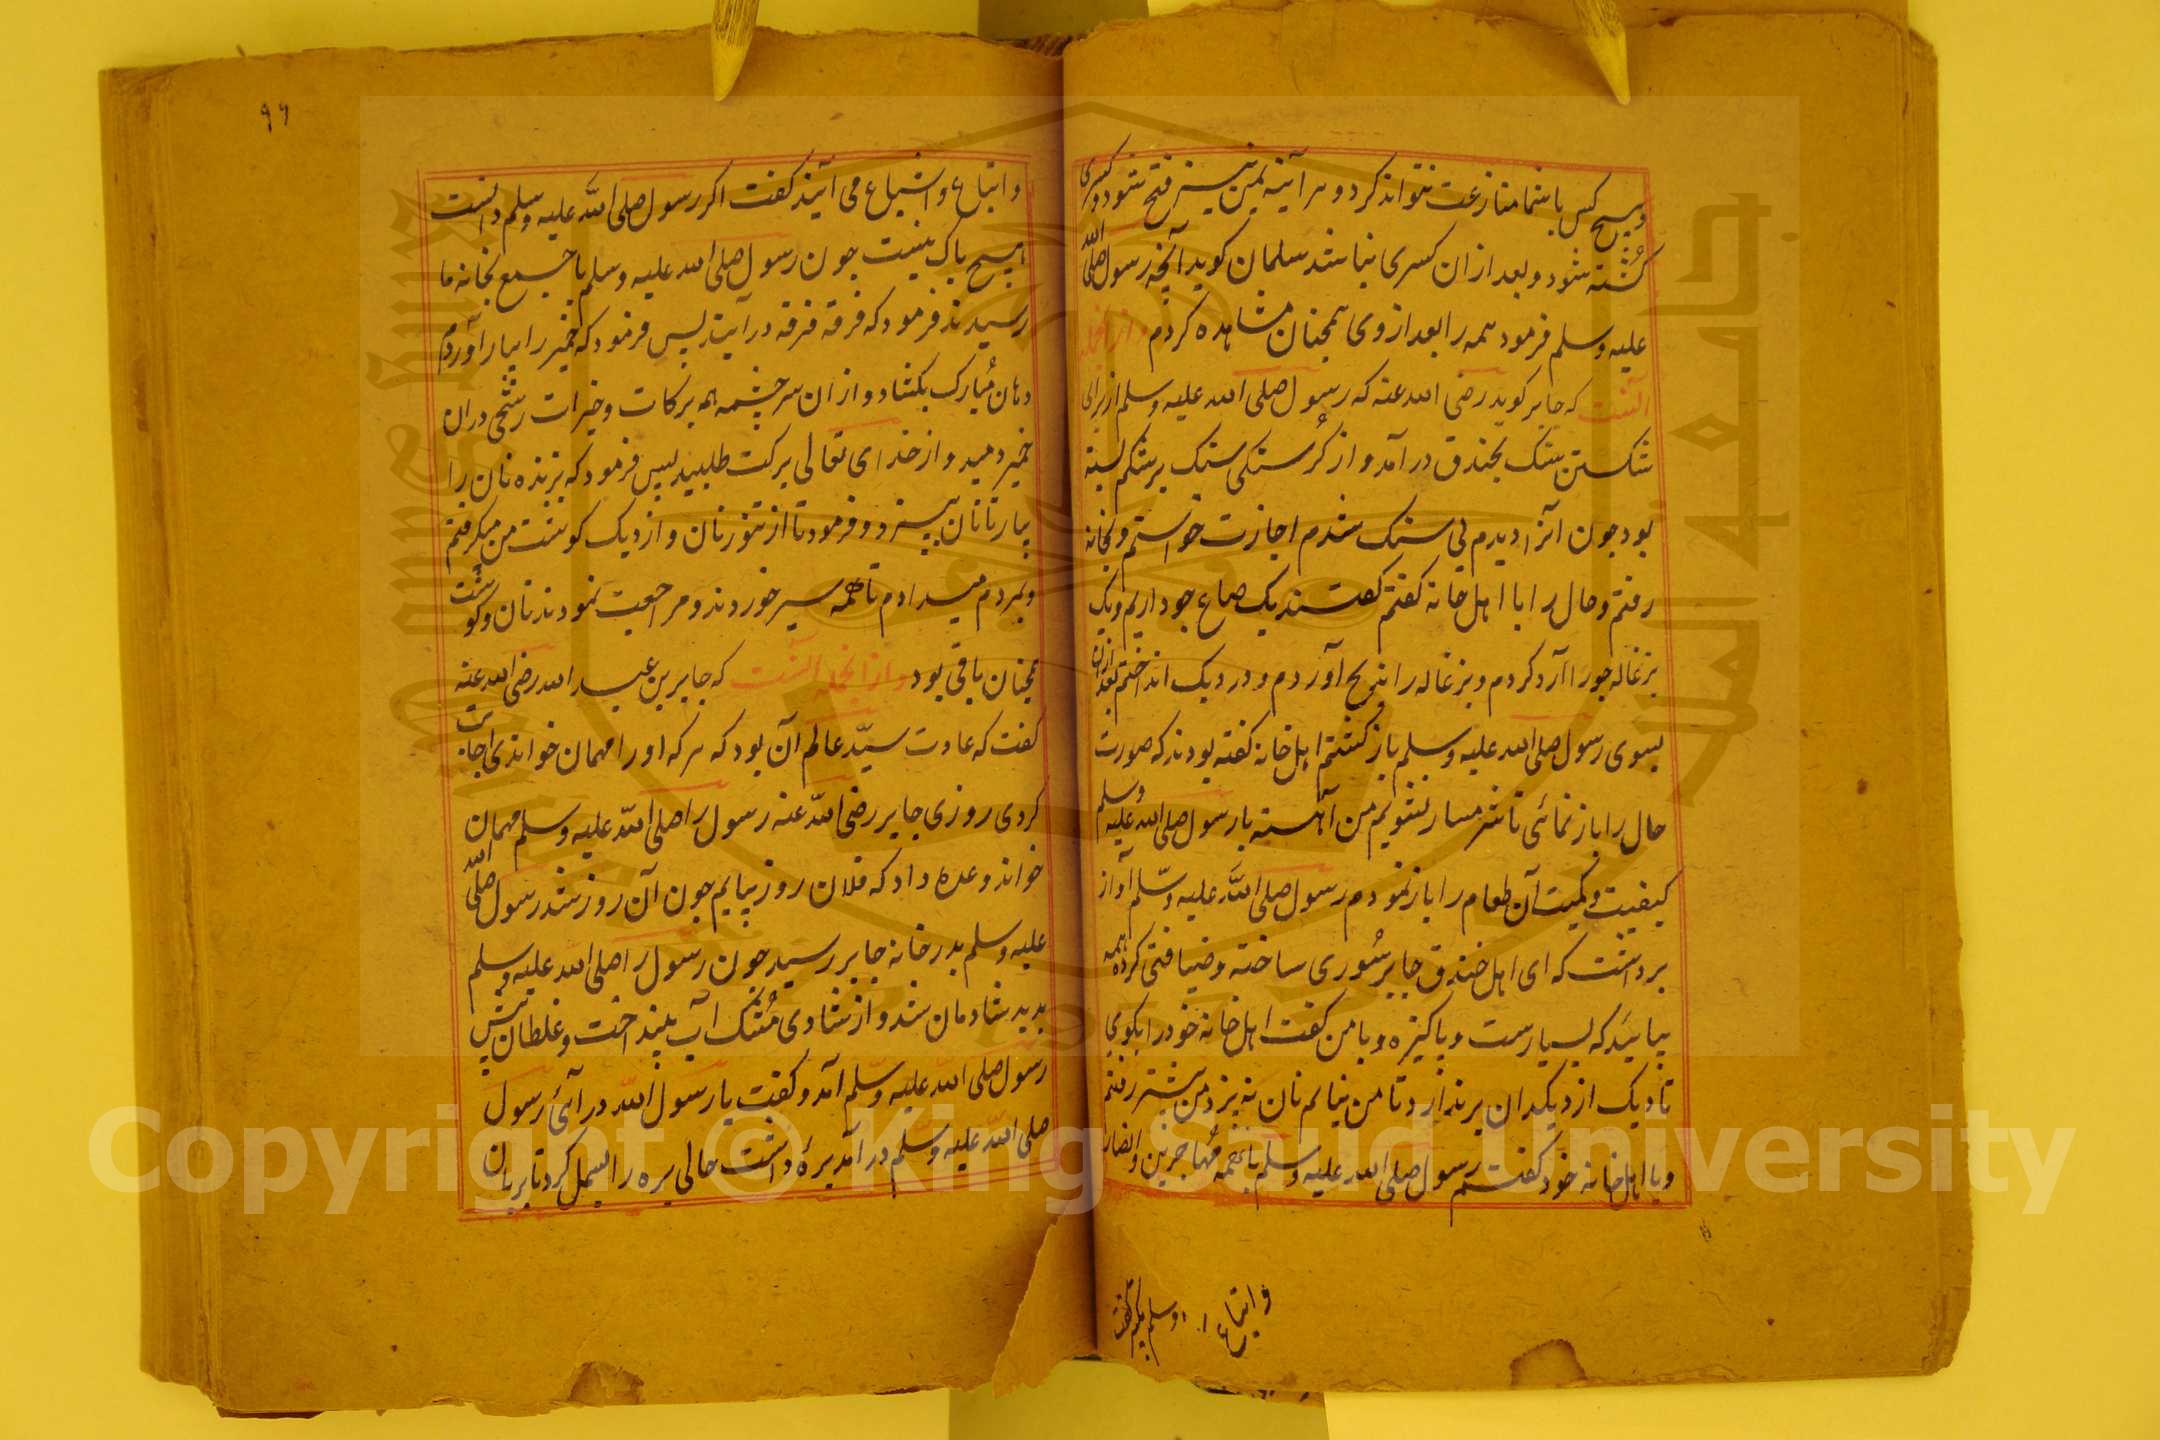 وهیچ کس باشما منازعت نتواند کرد و هر آینه یمن نیز فتح شود و کسری
کشته شود و بعد ازان کسری نباشد سلمان کوید آنچه رسول صلی الله
علیه وسلم فرمود همه را بعد از وی همچنان مشاهده کردم وازانجمله
آنست که جابر کوید رضی الله عنه که رسول صلی الله علیه وسلم از برای
شکستن سنک بخندق درآمد و از کرسنکی سنک بر شکم بسته
بود چون آنرا دیدم بی سنک شدم اجازت خواستم و بخانه
رفتم و حال را با اهل خانه کفتم کفتند یک صاع جو داریم و یک
بزغاله جو را آرد کردم و بزغاله را بذبح آوردم و در دیک انداختم بعد ازان
بسوی رسول صلی الله علیه وسلم باز کشتم اهل خانه کفته بودند که صورت
حال را باز نمائی تا شرمسار نشویم من آهسته با رسول صلی الله علیه وسلم
کیفیت و کمیت آن طعام را باز نمودم رسول صلی الله علیه وسلم آواز
برداشت که ای اهل خندق جابر سوری ساخته و ضیافتی کرده همه
بیائید که بسیارست و پاکیزه و با من کفت اهل خانه خود را بکوی
تا دیک از دیکدان برندارد تا من نیایم نان نه پزد من پیشتر رفتم
و با اهل خانه خود کفتم رسول صلی الله علیه وسلم با همه مهاجرین و انصار
و اتباع
و اتباع و اشیاع می آیند کفت اکر رسول صلی الله علیه وسلم دانست
هیچ باک نیست چون رسول صلی الله علیه وسلم با جمیع بخانه ما
رسیدند فرمود که فرقه فرقه درآیند پس فرمود که خمیر را بیار آوردم
دهان مبارک بکشاد و ازان سرچشمه همه برکات و خیرات رشحی دران
خمیر دمید و از خدای تعالی برکت طلبید پس فرمود که پزنده نان را
بیار تا نان پیزد و فرمود تا از تنور نان و از دیک کوشت من میکرفتم
و بمردم میدادم تا همه سیر خوردند و مراجعت نمودند نان و کوشت
همچنان باقی بود وازانجمله آنست که جابر بن عبد الله رضی الله عنه
کفت که عادت سید عالم آن بود که هر که او را مهمان خواندی اجابت
کردی روزی جابر رضی الله عنه رسول را صلی الله علیه وسلم مهمان
خواند وعده داد که فلان روز بیایم چون آن روز شد رسول صلی الله
علیه وسلم بدر خانه جابر رسید چون رسول را صلی الله علیه وسلم
بدید شادمان شد و از شادی مشک آب بینداخت و غلطان پیش
رسول صلی الله علیه وسلم آمد و کفت یا رسول الله درآی رسول
صلی الله علیه وسلم درآمد برۀ داشت حالی بره را بسمل کرد تا بریان
٩٦
Copyright © King Saud University
جامعة الملك سعود
King Saud University
1957